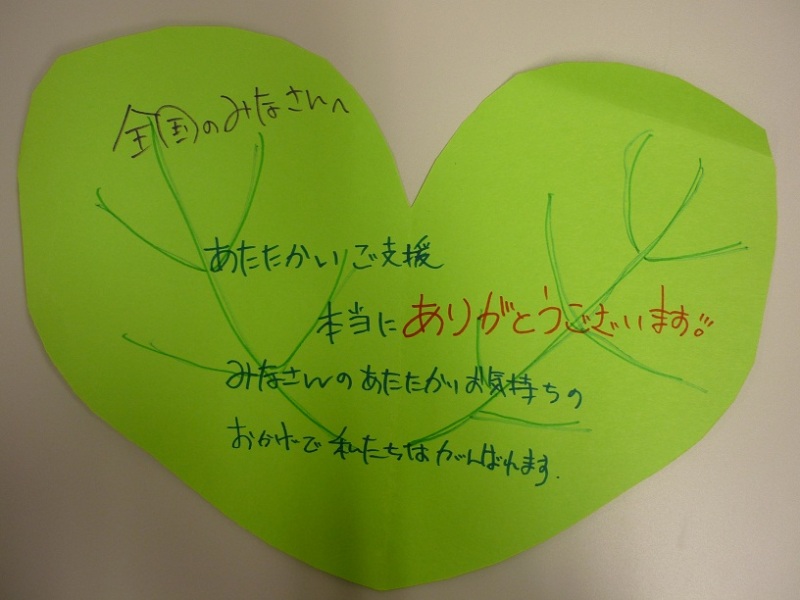 全国のみなさんへ
あたたかいご支援
本当にありがとうございます!!
みなさんのあたたかいお気持ちの
おかげで私たちはがんばれます.